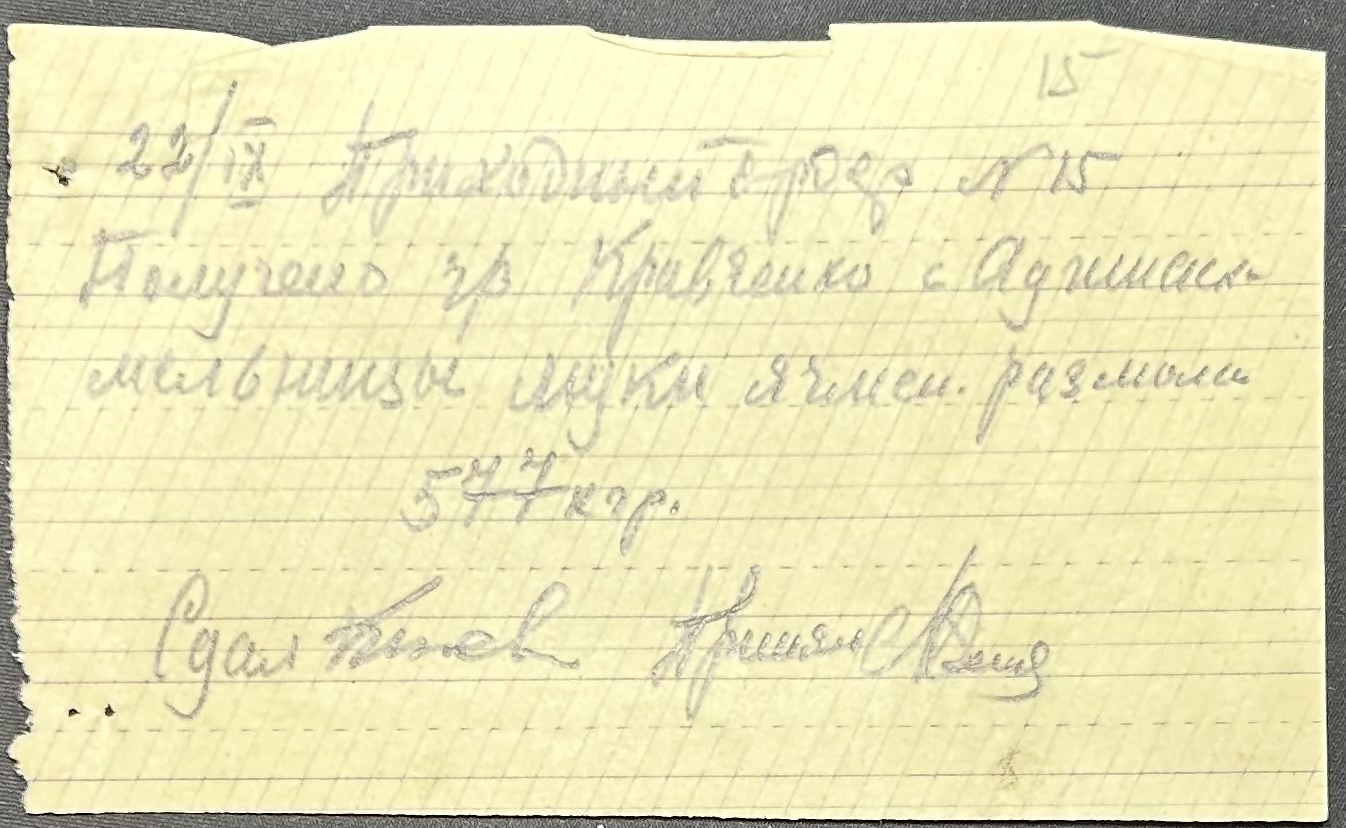 15
22/IX Приходный ордер N 15
Получено гр Кравченко с
мельницы муки ячмен. размола
577 кгр.
Сдал Принял